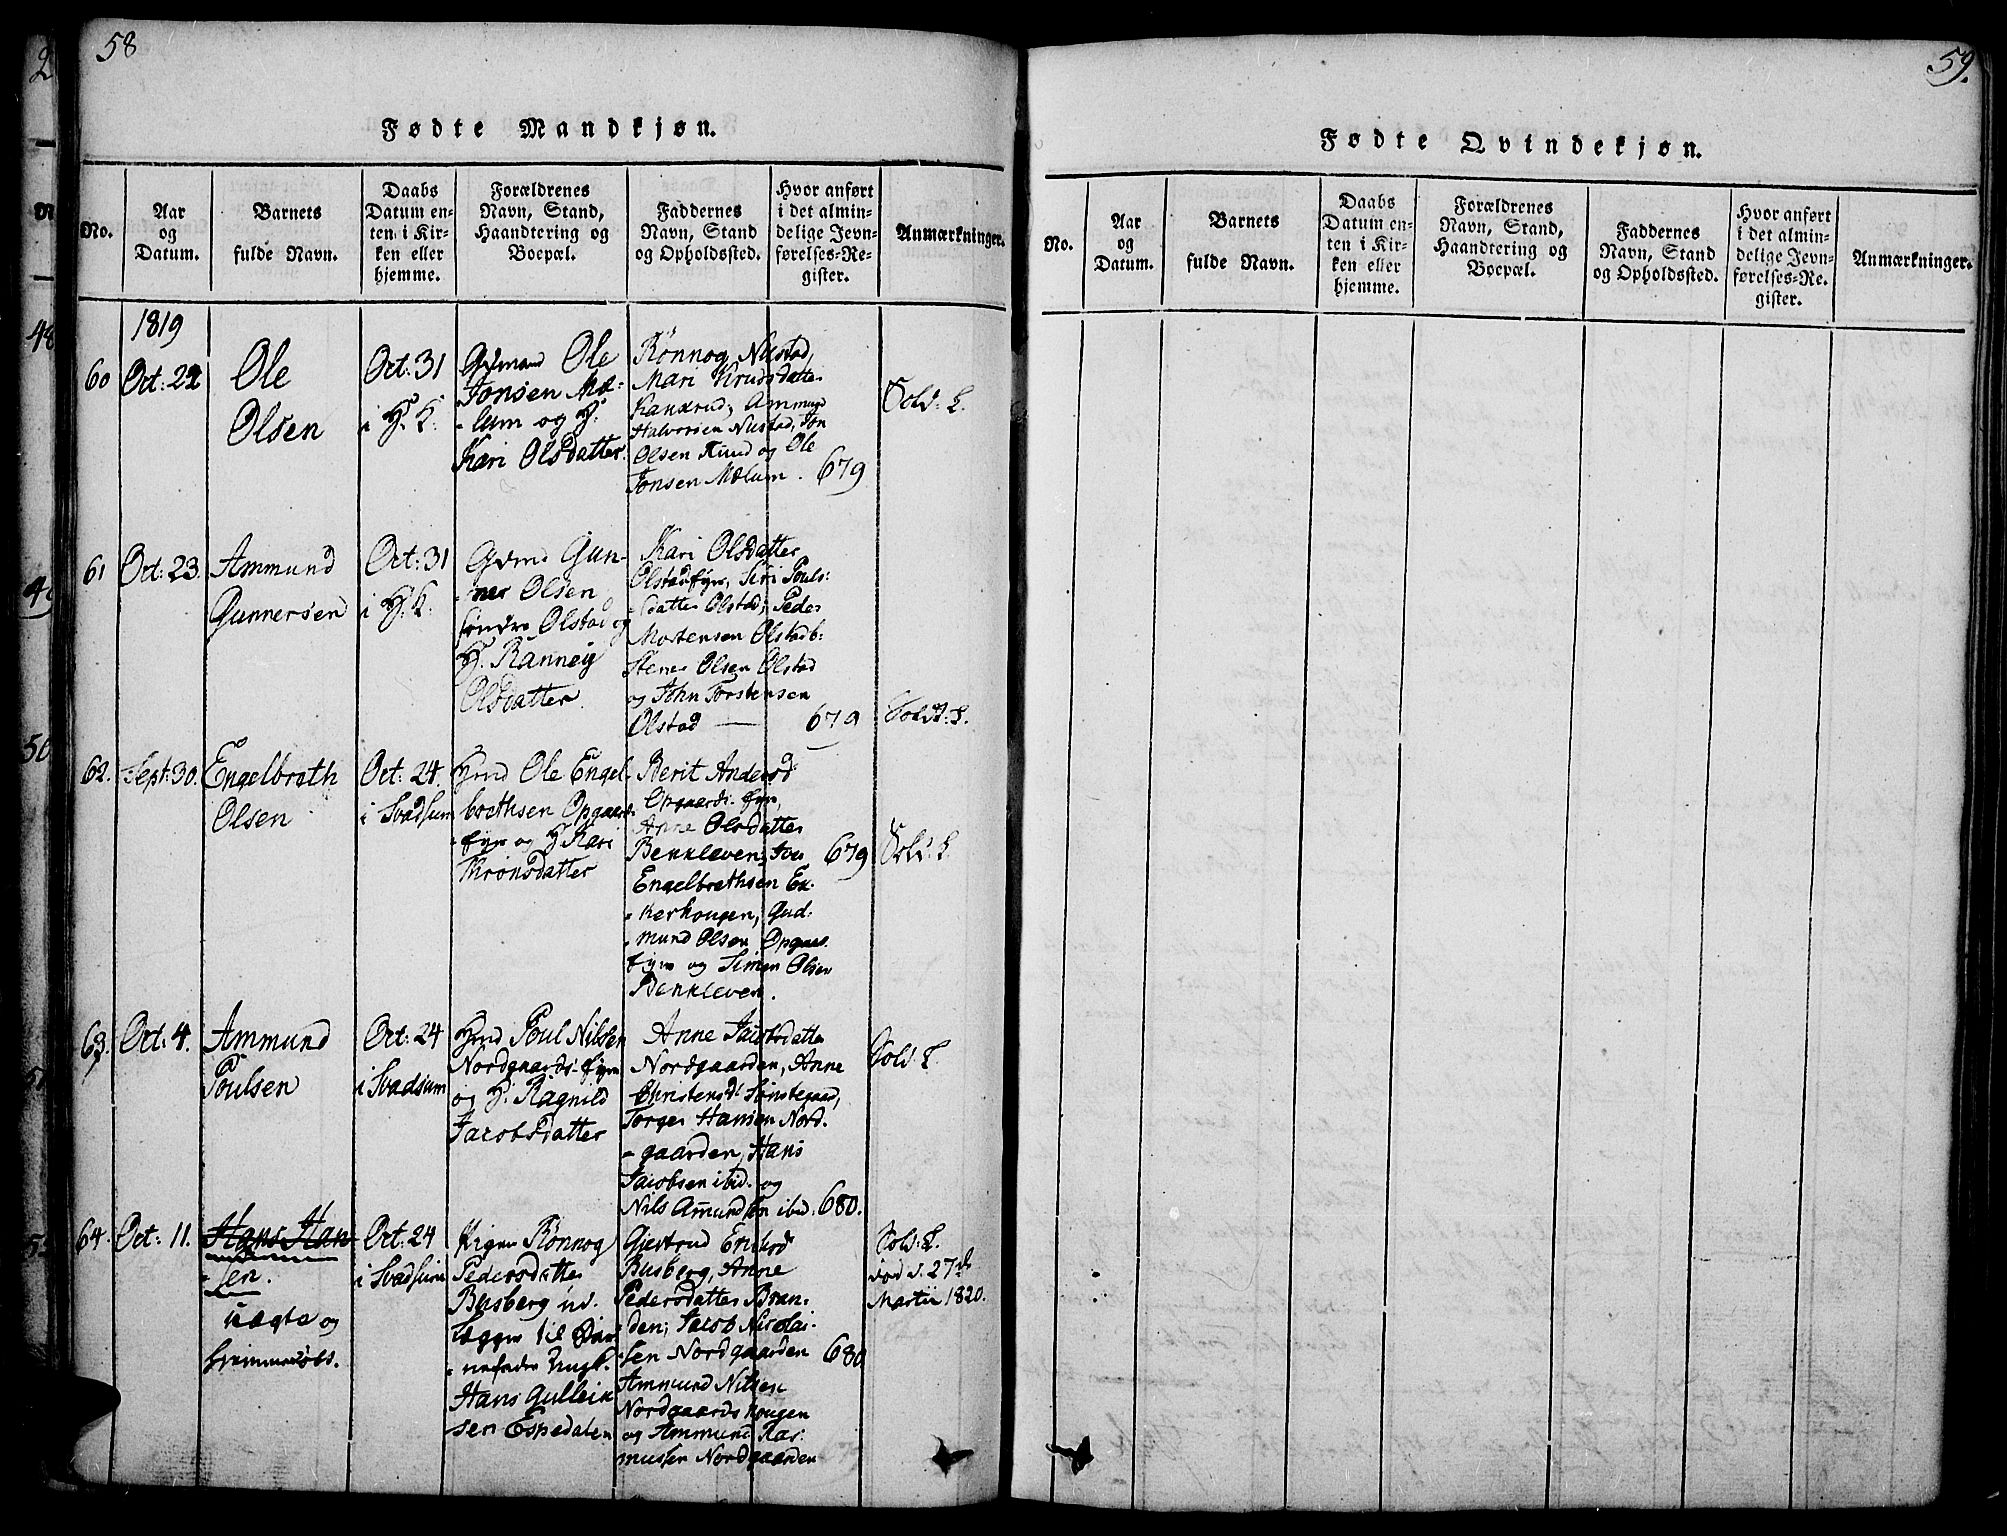 58
Fødte Mandkjøn.
No.
Aar
og
Datum.
Barnets
fulde Navn.
Daabs
Datum en-
ten i Kir-
ken eller
hjemme.
Forældrenes
Navn, Stand,
Haandtering og
Boepæl.
Faddernes
Navn, Stand
og Opholdssted.
Hvor anført
i det almin-
delige Jevn-
førelses-Re-
gister.
Anmærkninger.
1819
60
Oct: 22
Ole
Olsen
Oct: 31
i H. K:
Gdmand Ole
Jonsen Mæ-
lum og H.
Kari Olsdatter.
Rönnog Nustad,
Mari Knudsdatter
Kankrud, Ammund
Halvorsen Nustad, Jon
Olsen Kruud og Ole
Jonsen Mælum.
679
Sold: L.
61
Oct: 23.
Ammund
Gunnersen
Oct: 31
i H. K:
Gdmd Gun-
ner Olsen
søndre Olstad og
H. Ranneig
Olsdatter.
Kari Olsdatter
Olstadeye, Siri Pouls-
datter Olstad, Peder
Mortensen Olstadb:
Stener Olsen Olstad
og John Torstensen
Olstad —
679
Sold: L.
62.
Sept: 30.
Engelbreth
Olsen
Oct: 24.
i Svadsum
Hmd Ole Engel-
brethsen Opgaards
eye og H. Kari
Thronsdatter
Berit Andersd:
Opgaards-eye,
Anne Olsdatter
Benkleven, Iver
Engelbrethsen Ek-
kerhougen, Gud-
mund Olsen Opgaards
eye og Simen Olsen
Benkleven.
679
Sold: L.
63.
Oct: 4.
Ammund
Poulsen
Oct: 24
i Svadsum
Hmd Poul Nilsen
Nordgaards-eye
og H. Ragnild
Jacobsdatter
Anne Jacobsdatter
Nordgaarden, Anne
Christensd: Sönstegaard,
Torger Hansen Nord-
gaarden, Hans
Jacobsen ibid. og
Nils Amundsen ibid.
680.
Sold: L.
64.
Oct: 11.
Hans Han-
sen.
uægte og
Oct: 24
i Svadsum
Pigen Rönnog
Pedersdatter
Busberg ud-
lægger til Bar-
nefader Ungk.
Hans Gulleik-
sen Espedalen
Gjertrud Eriksd
Busberg, Anne
Pedersdatter Bran-
den; Jacob Nicolai-
sen Nordgaarden
Ammund Nilsen
Nordgaards hougen
og Ammund Ras-
musen Nordgaarden
680
Sold: L.
död d. 27de
Martii 1820.
59.
Fødte Qvindekjøn.
No.
Aar
og
Datum.
Barnets
fulde Navn.
Daabs
Datum en-
ten i Kir-
ken eller
hjemme.
Forældrenes
Navn, Stand,
Haandtering og
Boepæl.
Faddernes
Navn, Stand
og Opholdssted.
Hvor anført
i det almin-
delige Jevn-
førelses-Re-
gister.
Anmærkninger.